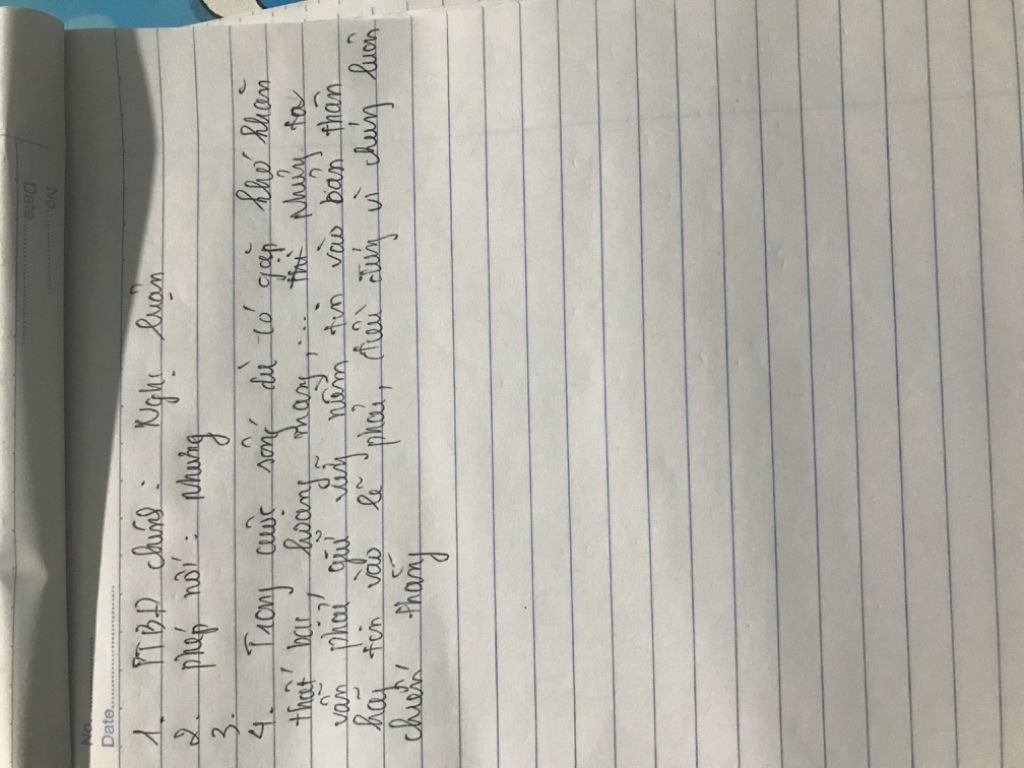 No.
Date
No.
Date
1. PTBĐ chính: Nghị luận
2. phép nối: nhưng
3.
4. Trong cuộc sống dù có gặp khó khăn
thất bại, hoang mang,... thì chúng ta
vẫn phải giữ vững niềm tin vào bản thân
hãy tin vào lẽ phải, điều đúng vì chúng luôn
chiến thắng